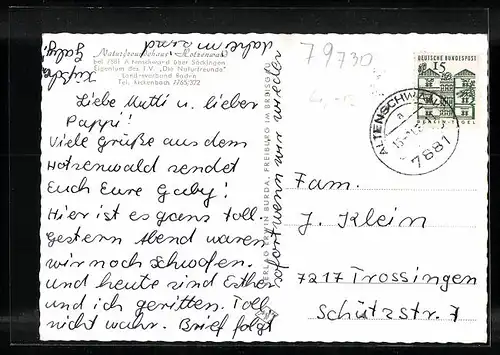 Naturfreundehaus "Hotzenwald"
bei 7881 Altenschwand über Säckingen
Eigentum des T.V. „Die Naturfreunde"
Landesverband Baden
Tel. Rickenbach 7765/372
Liebe Mutti u. lieber
Pappi!
Viele Grüße aus dem
Hotzenwald sendet
Euch Eure Gaby!
Hier ist es ganz toll.
Gestern Abend waren
wir noch schwofen.
Und heute sind Esther
und ich geritten. Toll
nicht wahr. Brief folgt
sofort wenn wir wieder
Gaby
VERLAG ERWIN BURDA, FREIBURG IM BREISGAU
79730
DEUTSCHE BUNDESPOST
15
TEGEL
ALTENSCHWAND
a
7881
Fam.
J. Klein
7217 Trossingen
Schützstr. 7